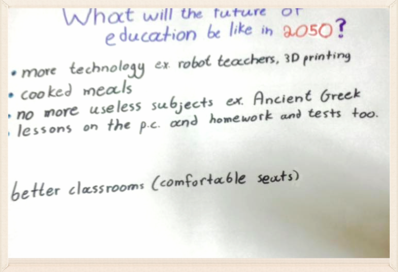 What will the future of
education be like in 2050?
• more technology ex robot teachers, 3D printing
• cooked meals
• no more useless subjects ex. Ancient Greek
• lessons on the p.c. and homework and tests too.
better classrooms (comfortable seats)